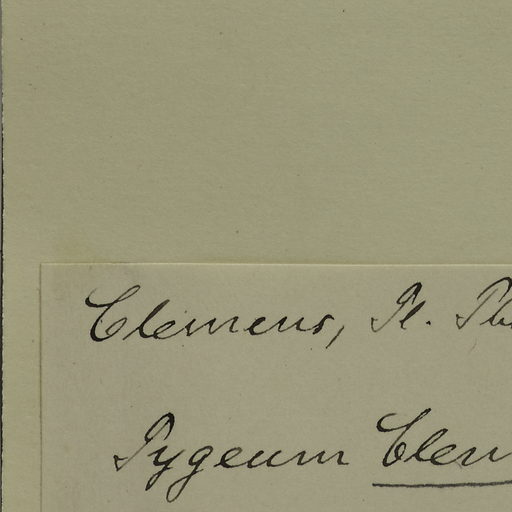 Clemens, Pl. Ph
Pygeum Clem